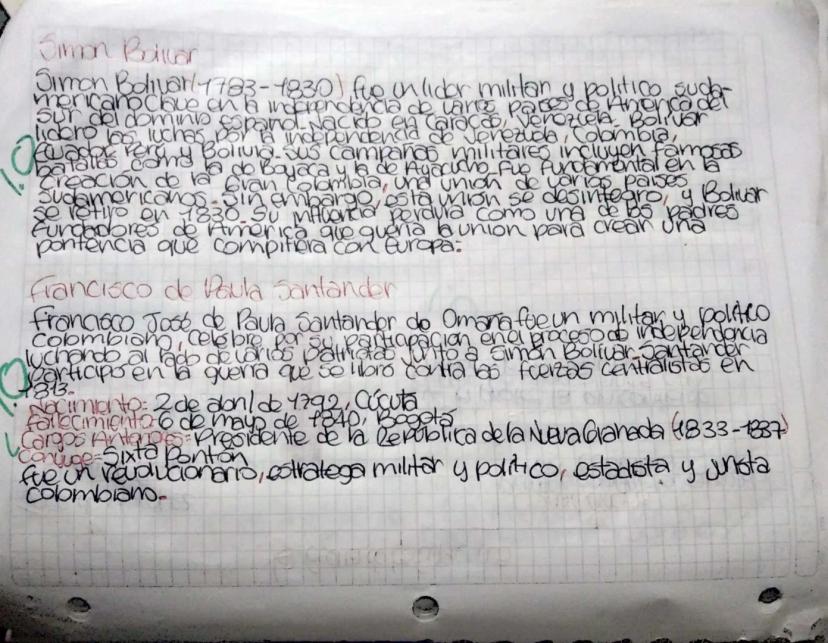 Simon Bolivar
Simon Bolivar (1783-1830) fue un lider militar y politico suda-
mericano clave en la independencia de varios paises de America del
sur del dominio español. Nacido en Caracas, Venezuela. Bolivar
lidero las luchas para la independencia de Venezuela, Colombia,
1.0
Ecuador Perú y Bolivia. sus campañas militares incluyen famosas
batallas como la de Boyaca y la de Ayacucho. fue fundamental en la
creación de la Gran Colombia, una union de varios paises
sudamericanos. sin embargo, esta union se desintegro, y Bolivar
se retiro en 1830. su influencia perdura como uno de los padres
fundadores de America que queria la union para crear una
pontencia que compitiera con Europa.
Francisco de Paula Santander
Francisco José de Paula Santander de Omaña fue un militar y político
colombiano, celebre por su participacion en el proceso de independencia
luchando al lado de varios patriotas junto a Simón Bolivar. Santander
1.0
participo en la guerra que se libro contra las fuerzas centralistas en
1813.
Nacimiento: 2 de abril de 1792, Cúcuta
Fallecimiento: 6 de mayo de 1840, Bogotá
Cargos Anteriores: Presidente de la República de la Nueva Granada (1833-1837)
Conyuge: Sixta Pontón
fue un revolucionario, estratega militar y político, estadista y jurista
colombiano.